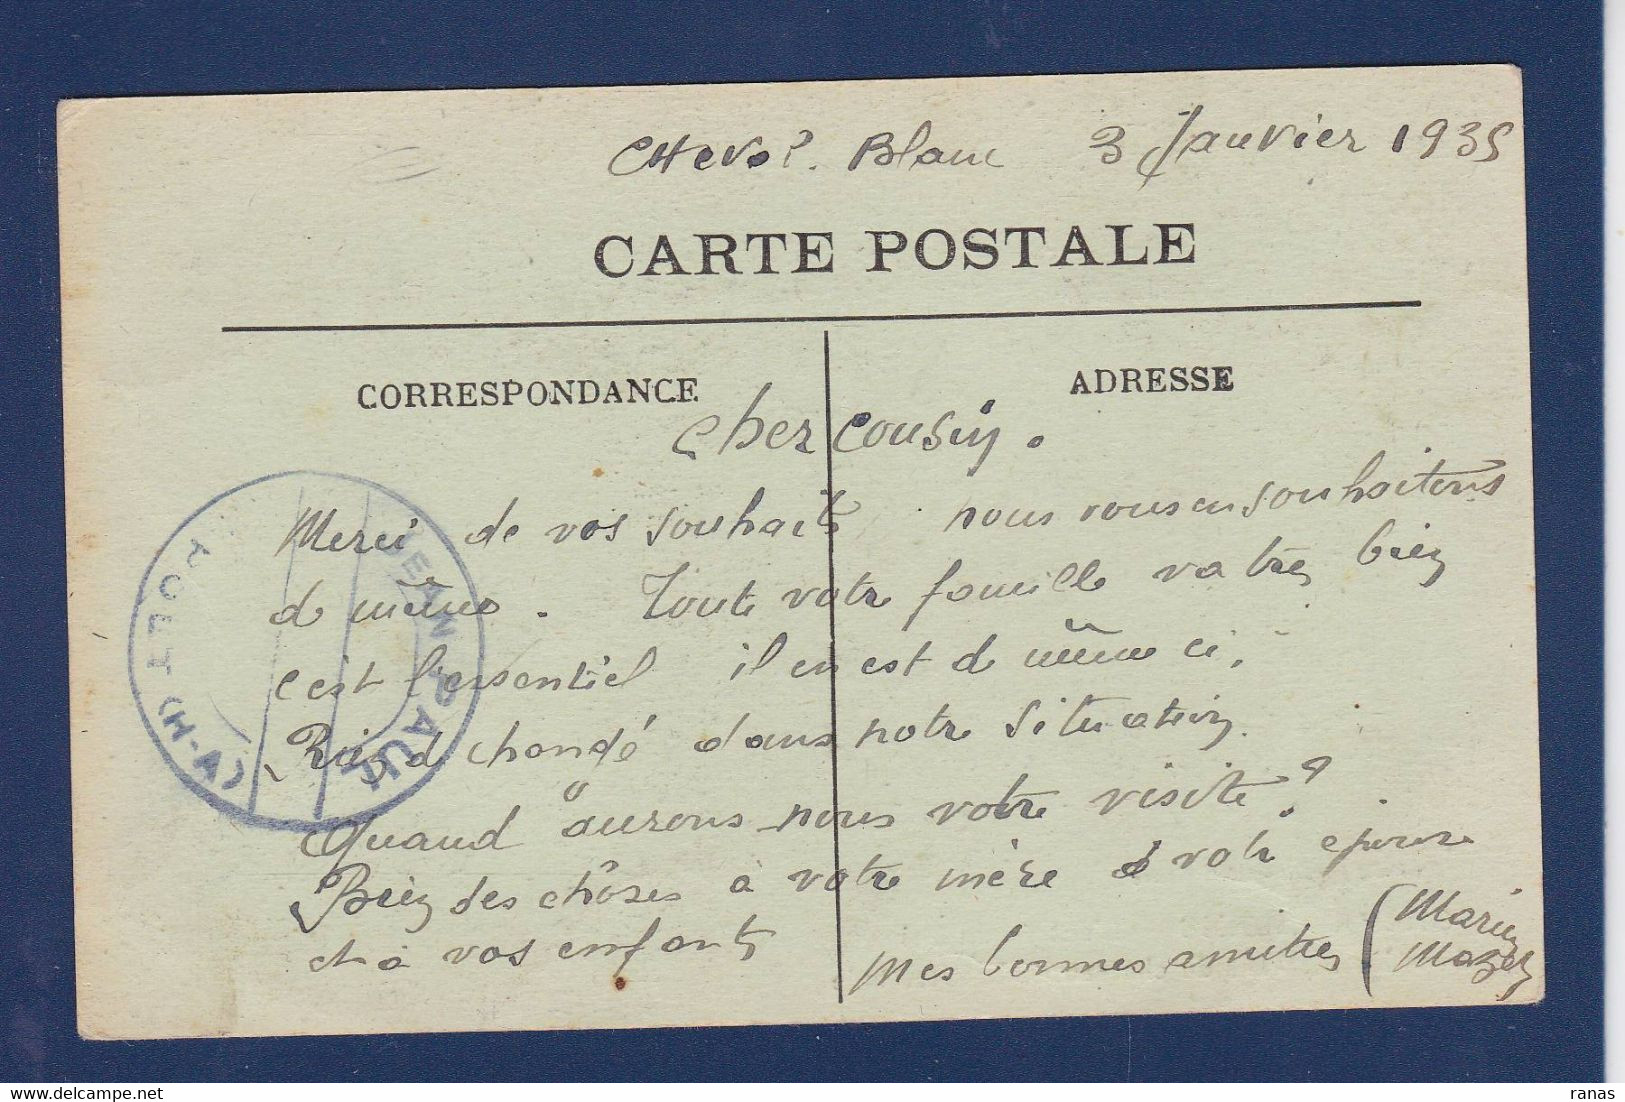 Cheval. Blanc 3 Janvier 1935
CARTE POSTALE
CORRESPONDANCE
ADRESSE
Cher Cousin.
Merci de vos souhaits nous vous en souhaitons
de même. Toute votre famille va très bien
c'est l'essentiel il en est de même ici,
Rien d changé dans notre situation.
Quand aurons nous votre visite?
Bien des chôses à votre mère & votre epouse
et à vos enfants
Mes bonnes amitiés (Marius
JEAN PAUT
POET (H-A)
ranas